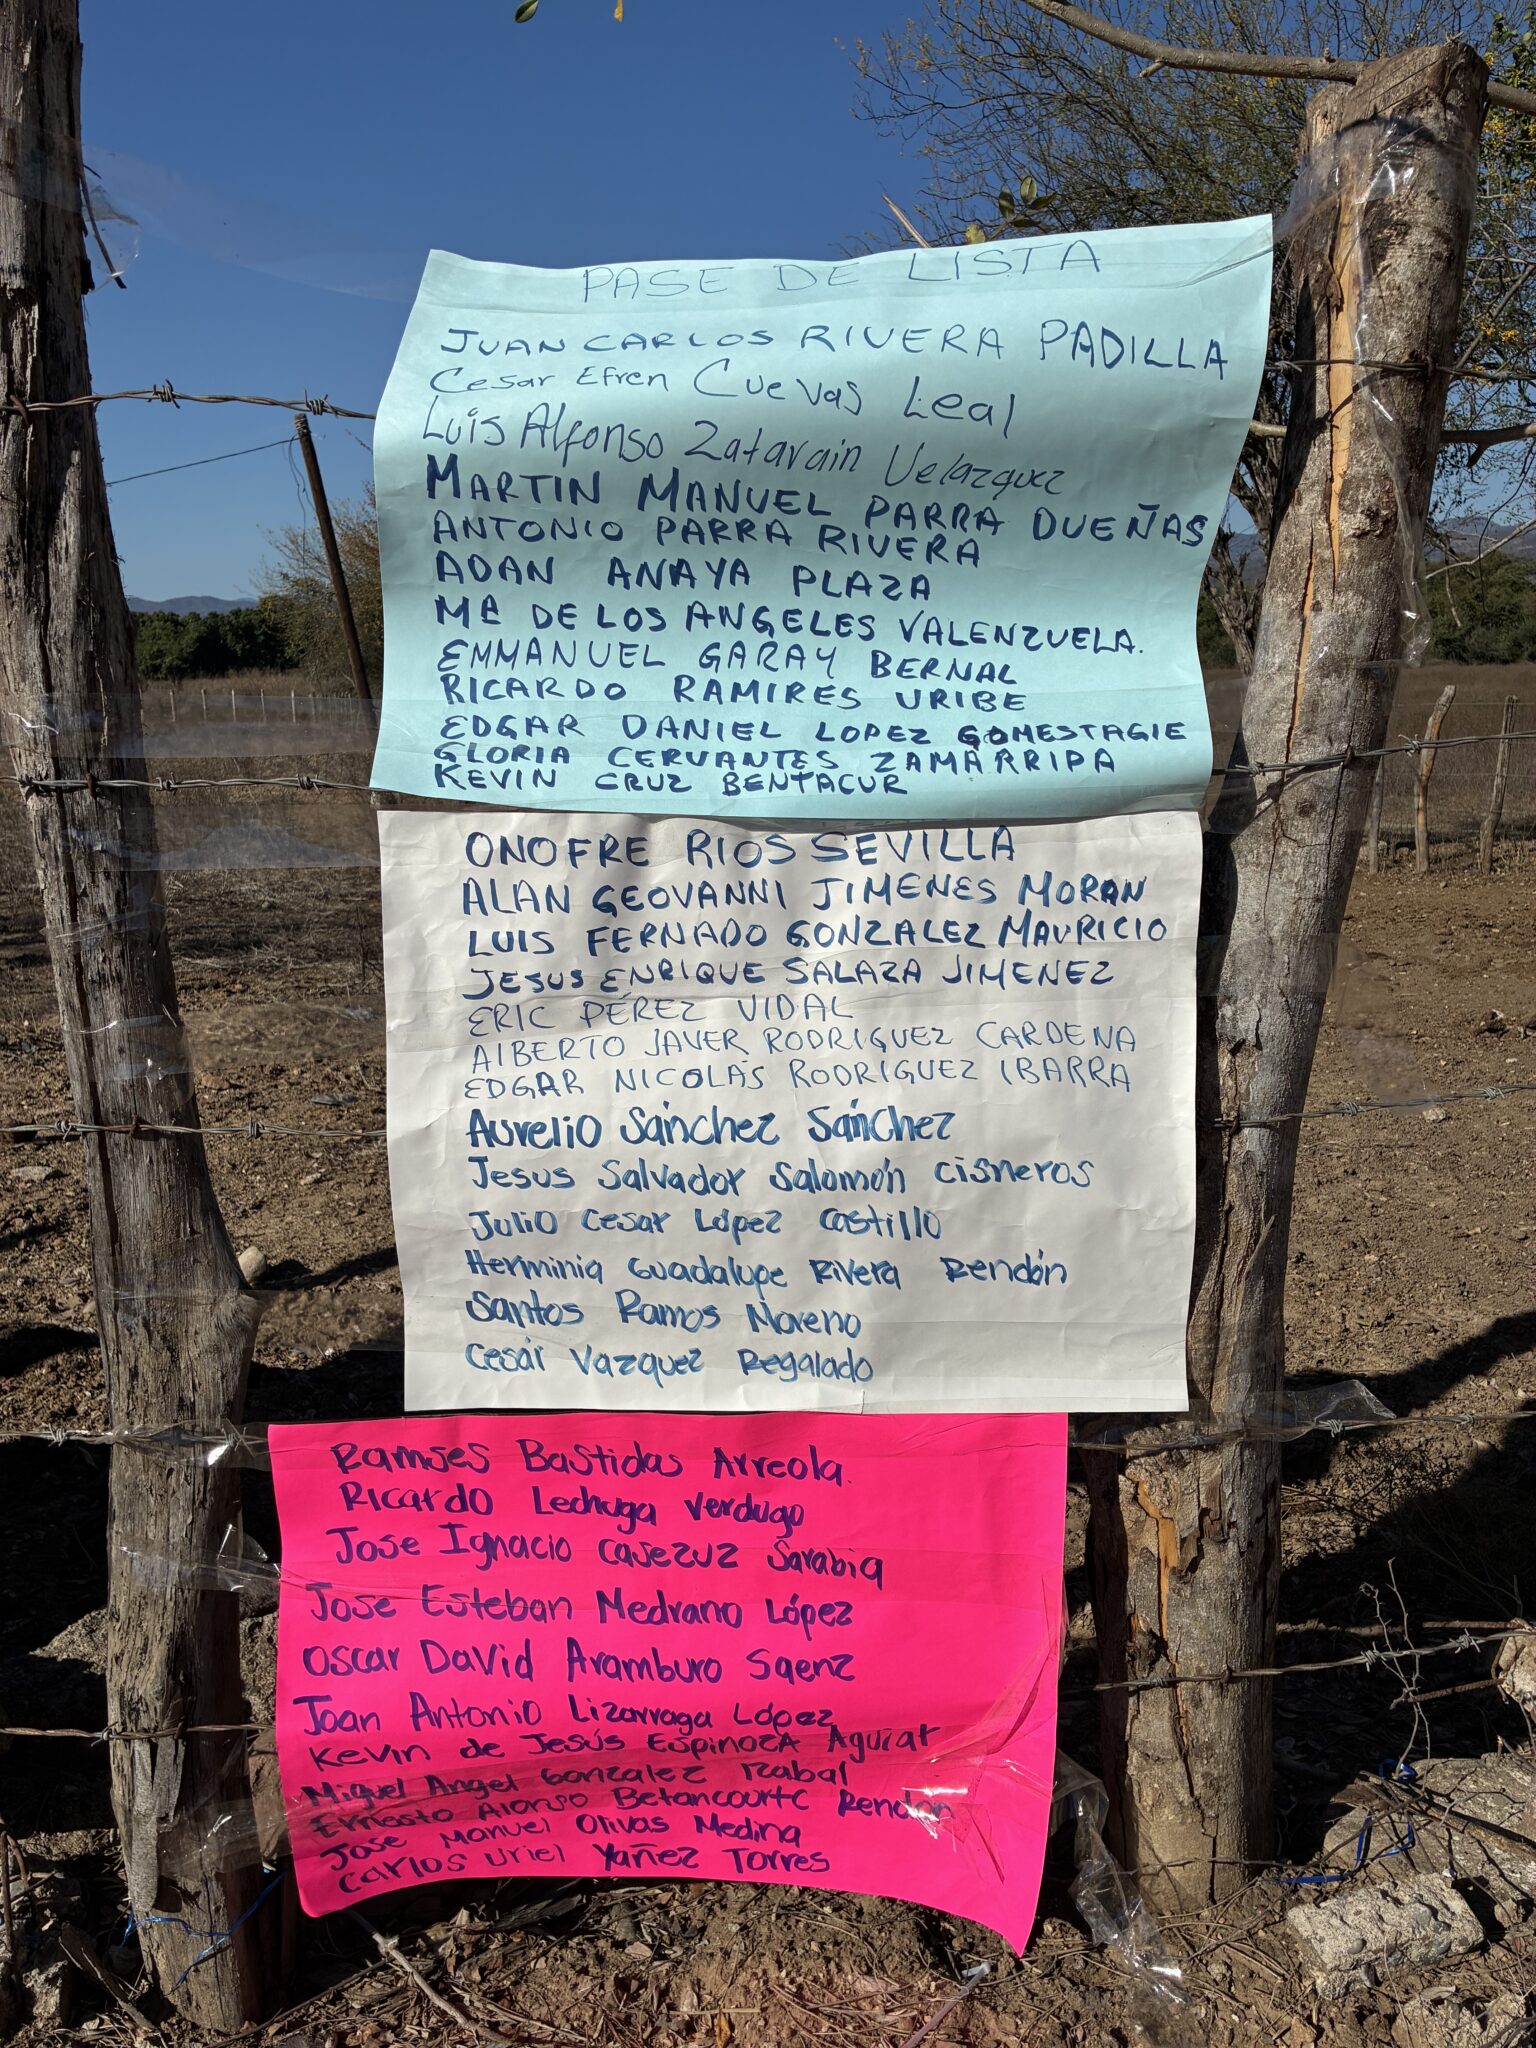 PASE DE LISTA
JUAN CARLOS RIVERA PADILLA
Cesar Efren Cuevas Leal
Luis Alfonso Zatarain Velazquez
MARTIN MANUEL PARRA DUEÑAS
ANTONIO PARRA RIVERA
ADAN ANAYA PLAZA
Ma DE LOS ANGELES VALENZUELA.
EMMANUEL GARAY BERNAL
RICARDO RAMIRES URIBE
EDGAR DANIEL LOPEZ GOMESTAGIE
GLORIA CERVANTES ZAMARRIPA
KEVIN CRUZ BENTACUR
ONOFRE RIOS SEVILLA
ALAN GEOVANNI JIMENES MORAN
LUIS FERNADO GONZALEZ MAURICIO
JESUS ENRIQUE SALAZA JIMENEZ
ERIC PÉREZ VIDAL
AlBERTO JAVER RODRIGUEZ CARDENA
EDGAR NICOLÁS RODRIGUEZ IBARRA
Aurelio Sánchez Sánchez
Jesus Salvador Salomón Cisneros
Julio Cesar López Castillo
Herminia Guadalupe Rivera Rendón
Santos Ramos Moreno
Cesár Vazquez Regalado
Ramses Bastidas Arreola.
Ricardo Lechuga Verdugo
Jose Ignacio Casezuz Sarabia
Jose Esteban Medrano López
Oscar David Aramburo Saenz
Joan Antonio Lizarraga López
Kevin de Jesús Espinoza Aguiar
Miguel Angel Gonzalez Izabal
Ernesto Alonso Betancourtc Rendón
Jose Manuel Olivas Medina
Carlos Uriel Yañez Torres